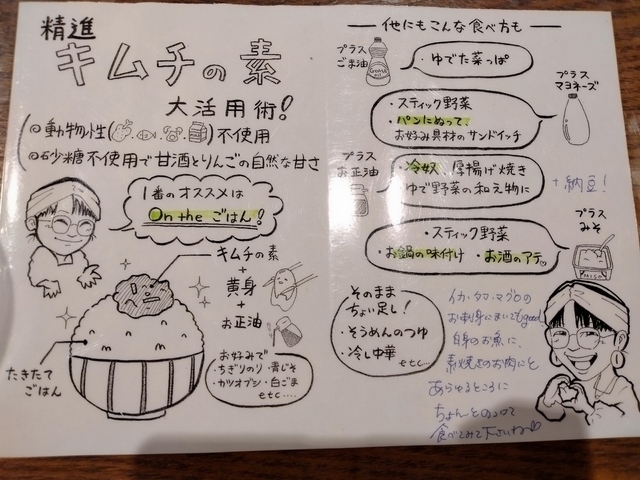 精進
キムチの素
大活用術!
◎動物性( )不使用
◎砂糖不使用で甘酒とりんごの自然な甘さ
1番のオススメは
On the ごはん!
キムチの素
+
黄身
+
お正油
たきたて
ごはん
お好みで
・ちぎりのり・青じそ
・カツオブシ・白ごま
etc....
他にもこんな食べ方も
プラス
ごま油
・ゆでた菜っぱ
プラス
マヨネーズ
・スティック野菜
・パンにぬって、
お好み具材のサンドイッチ
プラス
お正油
・冷奴、厚揚げ焼き
ゆで野菜の和え物に
+納豆!
プラス
みそ
・スティック野菜
・お鍋の味付け ・お酒のアテ♡
そのまま
ちょい足し!
・そうめんのつゆ
・冷し中華
etc...
イカ・タコ・マグロの
お刺身にまぜてもgood
白身のお魚に、
素焼きのお肉にと
あらゆるところに
ちょんとのっけて
食べてみて下さいね♡